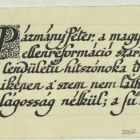 Pázmány Péter, a magy
ellenreformáció szár
lendületű hitszónoka t
iképen a szem nem láth
lagosság nélkül; a fü
2002